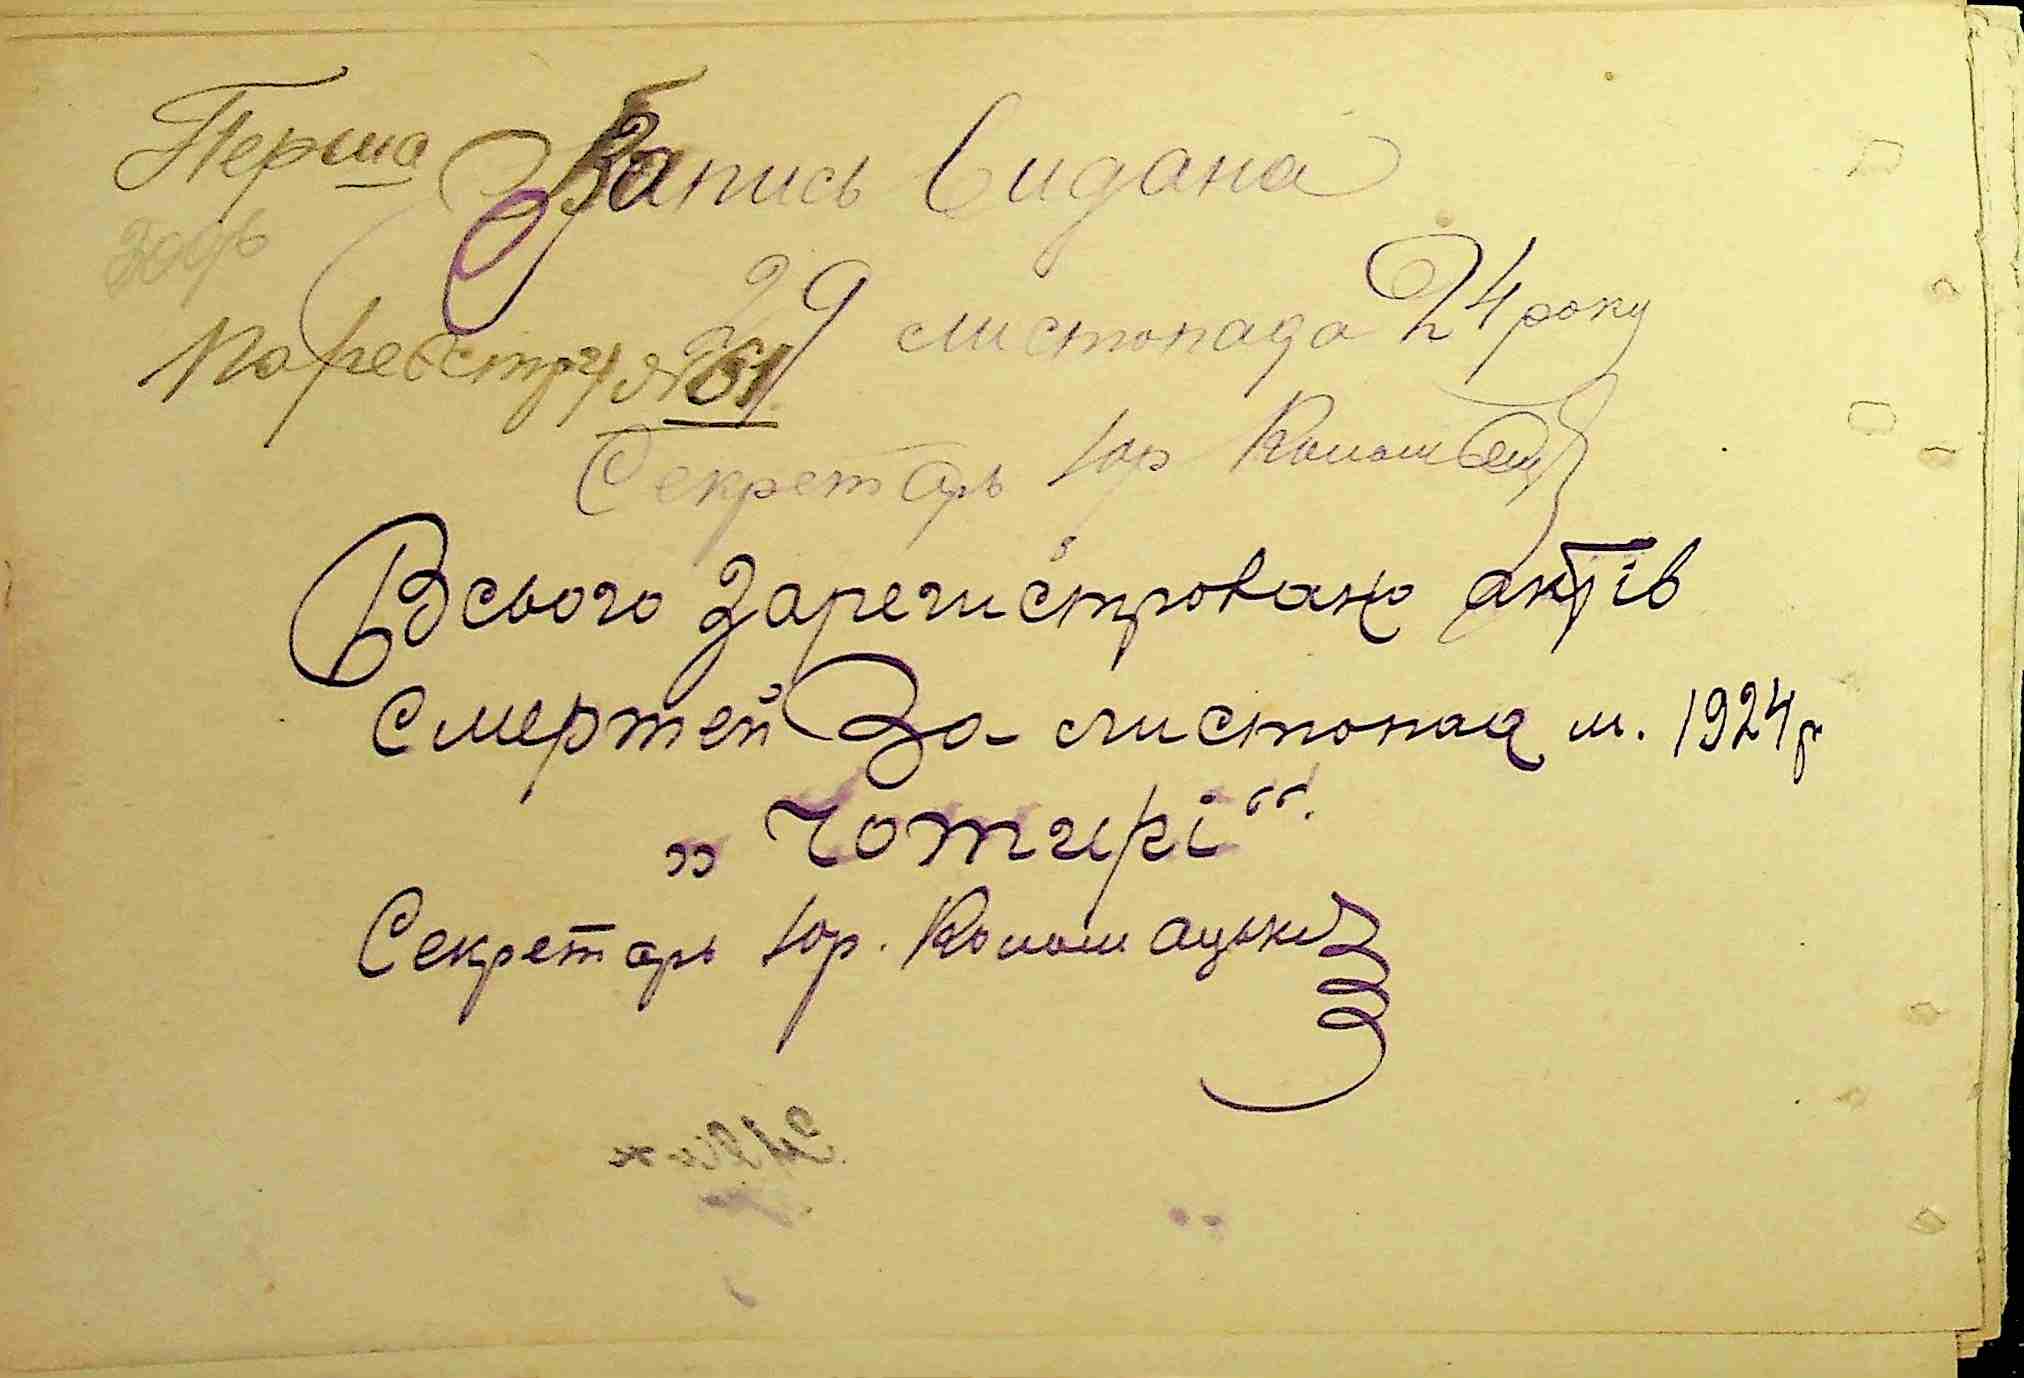 Перша Запись видана
29 листопада 24 року
По реєстру № 61
Секретарь Юр
Всього зарегистровано актів
смертей За листопад м. 1924 р
„Чотирі“.
Секретарь Юр. Коломацький